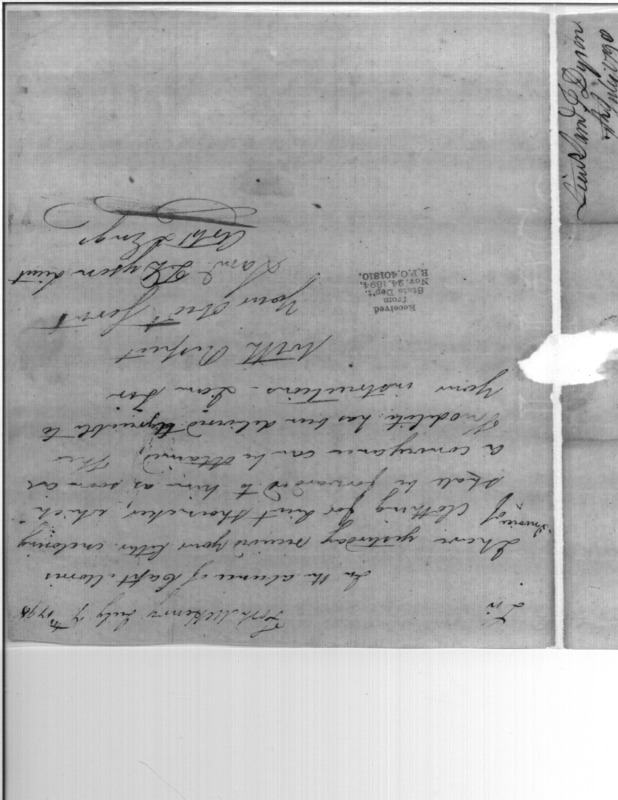 Sir
Fort McHenry July 7th 1798
In the absence of Capt. Morris
I have yesterday received your letter inclosing
Invoice of Clothing for Lieut
shall be forwarded to him as soon as
a conveyance can be obtained, the
has been delivered agreeable to
Your instructions. I am Sir
With Respect
Your Obt Servt
Sam. T. Dyson Lieut
Art & Engs
Received
from
State Dep't.
Nov. 24, 1894.
R.P.O. 401810.
Lieut Sam T Dyson
7th July 1798